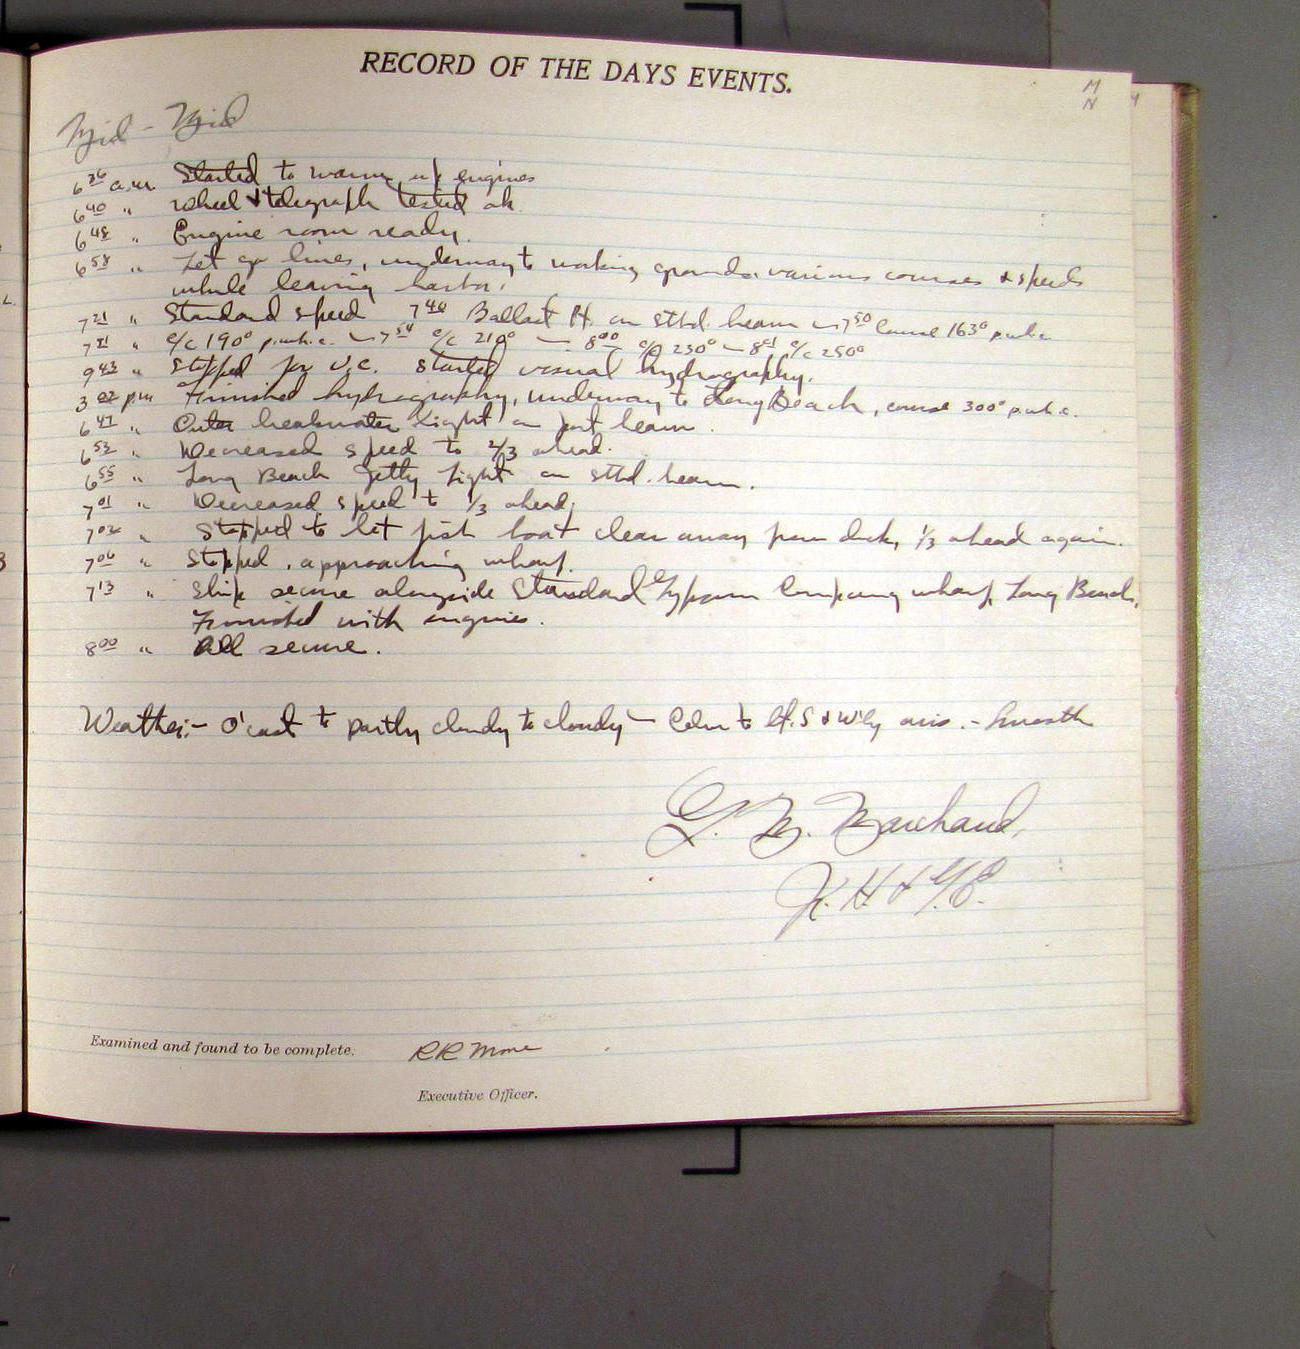 RECORD OF THE DAYS EVENTS.
M
N
Mid - Mid
6 36 a.m. Started to warm up engines
6 40 " Wheel & telegraph tested ok.
6 48 " Engine room ready.
6 58 " Let go lines, underway to working grounds various courses & speeds
while leaving harbor.
7 21 " Standard speed 7 46 Ballast Pt. on stbd. beam — 7 50 Course 163° p.wh.c.
7 51 " c/c 190° p.wh.c. — 7 54 c/c 210° — 8 00 c/c 230° — 8 01 c/c 250°
9 43 " Stopped for V.C. started visual hydrography.
3 02 p.m Finished hydrography, underway to Long Beach, course 300° p.wh.c.
6 47 " Outer breakwater light on port beam.
6 52 " Decreased speed to 2/3 ahead.
6 55 " Long Beach Jetty Light on stbd. beam.
7 01 " Decreased speed to 1/3 ahead.
7 02 " Stopped to let fish boat clear away from dock, 1/3 ahead again.
7 06 " Stopped, approaching wharf.
7 13 " Ship secure alongside Standard Gypsum Company wharf, Long Beach.
Finished with engines.
8 00 " All secure.
Weather:- O'cast to partly cloudy to cloudy - Calm to lt. S & W'ly airs. - Smooth
G. M. Marchand.
Examined and found to be complete. R R Moore
Executive Officer.